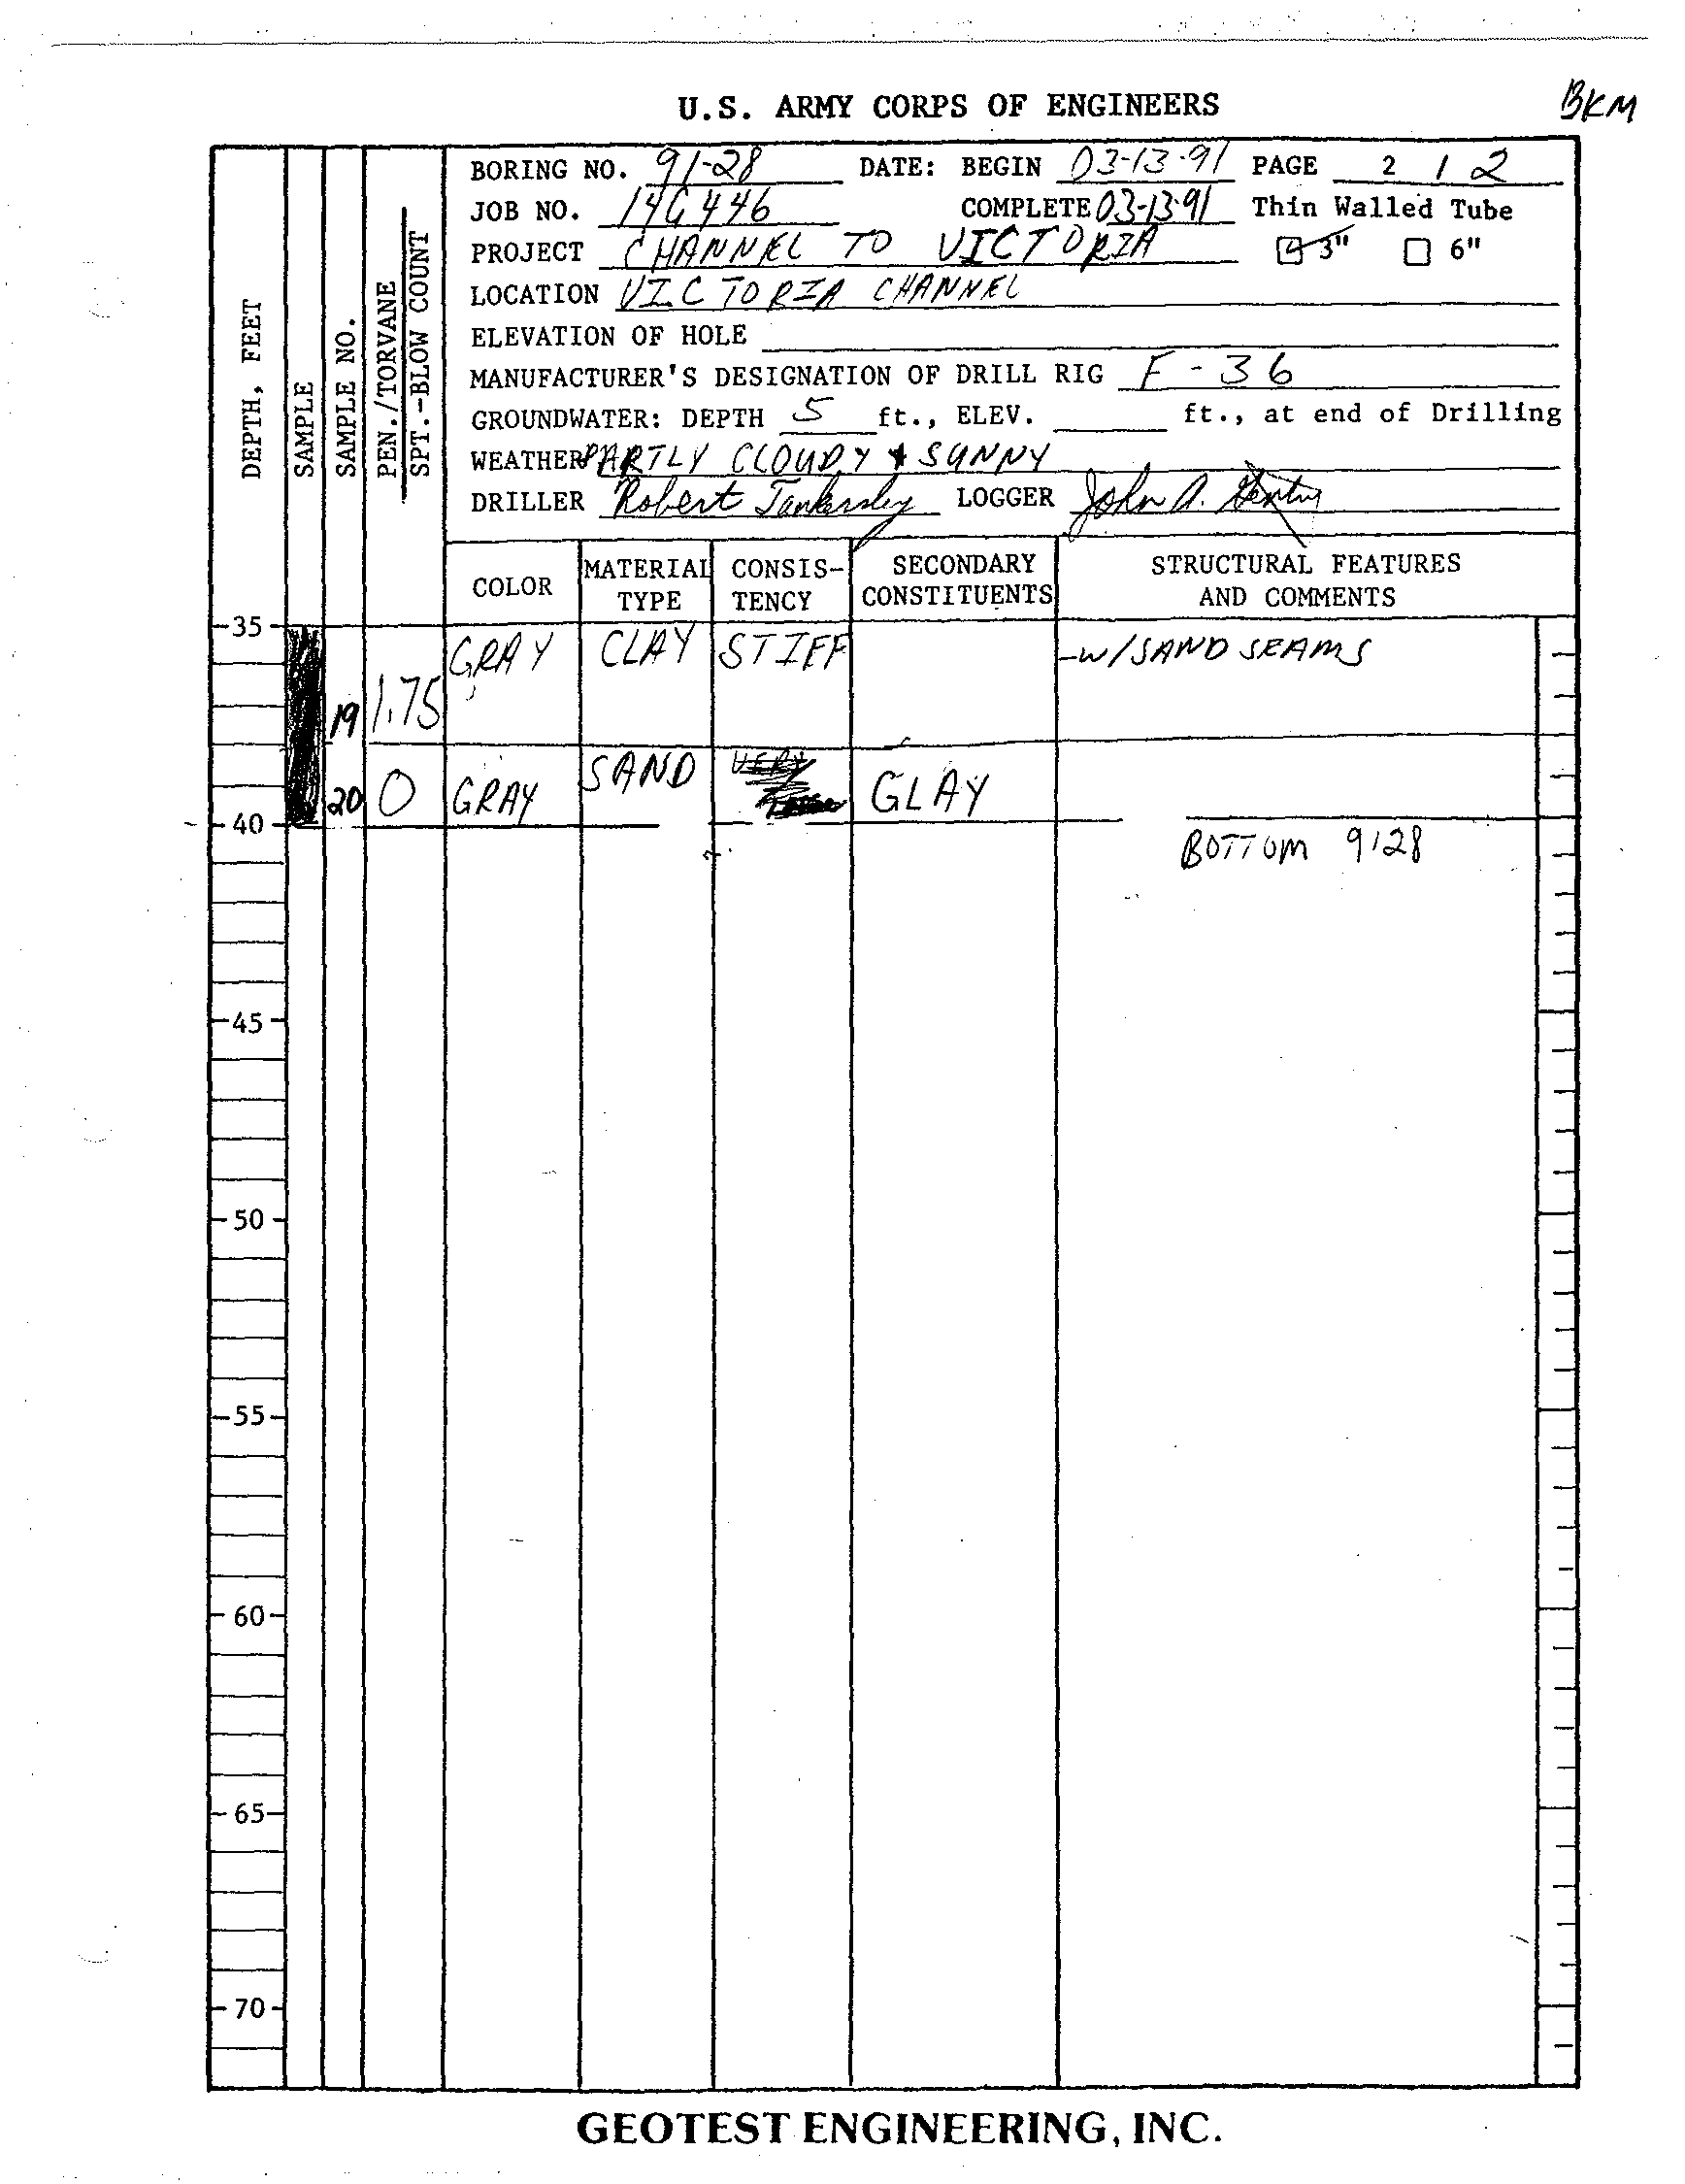 U.S. ARMY CORPS OF ENGINEERS
BKM
BORING NO. 91-28 DATE: BEGIN 03-13-91 PAGE 2 / 2
JOB NO. 14G446 COMPLETE 03-13-91 Thin Walled Tube
PROJECT CHANNEL TO VICTORIA 3" 6"
LOCATION VICTORIA CHANNEL
ELEVATION OF HOLE
MANUFACTURER'S DESIGNATION OF DRILL RIG F-36
GROUNDWATER: DEPTH 5 ft., ELEV. ft., at end of Drilling
WEATHER PARTLY CLOUDY & SUNNY
DRILLER Robert Tankersley LOGGER John A.
DEPTH, FEET
SAMPLE
SAMPLE NO.
PEN./TORVANE
SPT.-BLOW COUNT
COLOR
MATERIAL TYPE
CONSIS-TENCY
SECONDARY CONSTITUENTS
STRUCTURAL FEATURES AND COMMENTS
35
GRAY CLAY STIFF -W/SAND SEAMS
19 1.75
20 0 GRAY SAND VERY CLAY
40
BOTTOM 9128
45
50
55
60
65
70
GEOTEST ENGINEERING, INC.